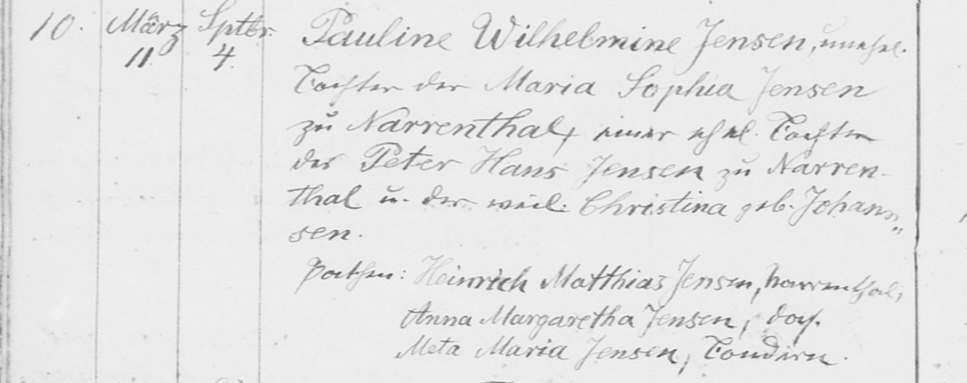 10. März 11. Sptbr. 4. Pauline Wilhelmine Jensen, unehel.
Tochter der Maria Sophia Jensen
zu Narrenthal, einer ehel. Tochter
des Peter Hans Jensen zu Narren-
thal u. der weil. Christina geb. Johann„
sen.
Pathen: Heinrich Matthias Jensen, Narrenthal,
Anna Margaretha Jensen, das.
Meta Maria Jensen, Tondern.